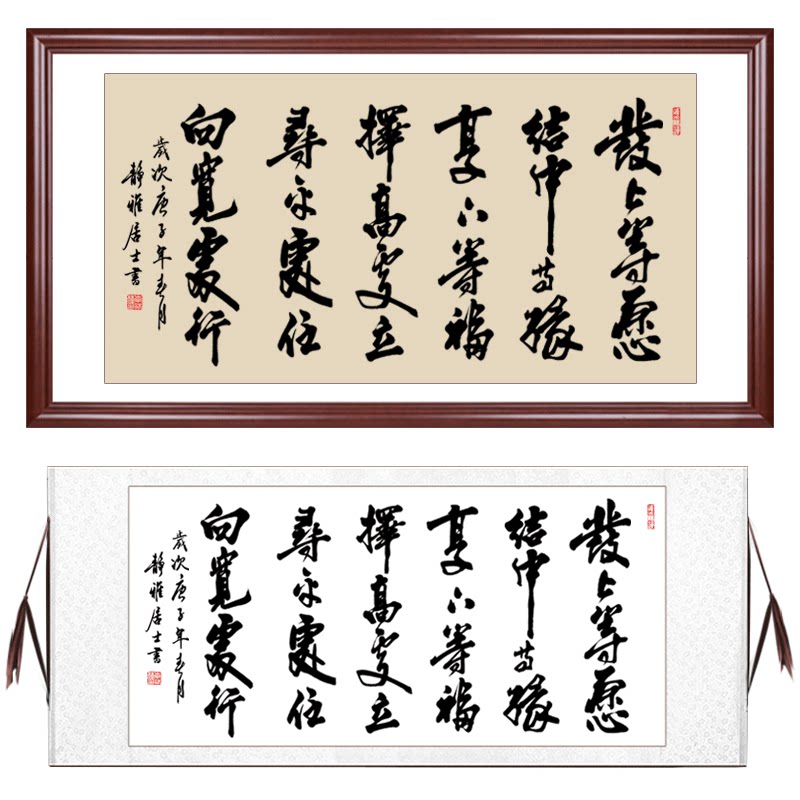 發上等愿
結中等緣
享下等福
擇高處立
尋平處住
向寬處行
歲次庚子年春月
靜雅居士書
發上等愿
結中等緣
享下等福
擇高處立
尋平處住
向寬處行
歲次庚子年春月
靜雅居士書